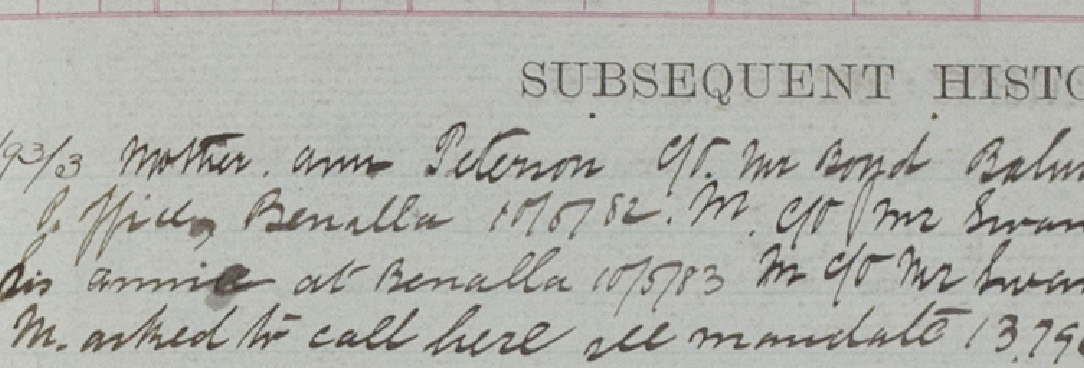 SUBSEQUENT HISTO
93/3 Mother. Ann Peterson c/o. Mr Boyd
P. Office, Benalla 10/5/82. M. c/o Mr Swan
Sis Annie at Benalla 10/5/83 M c/o Mr Swan
M. asked to call here see mandate 13.79